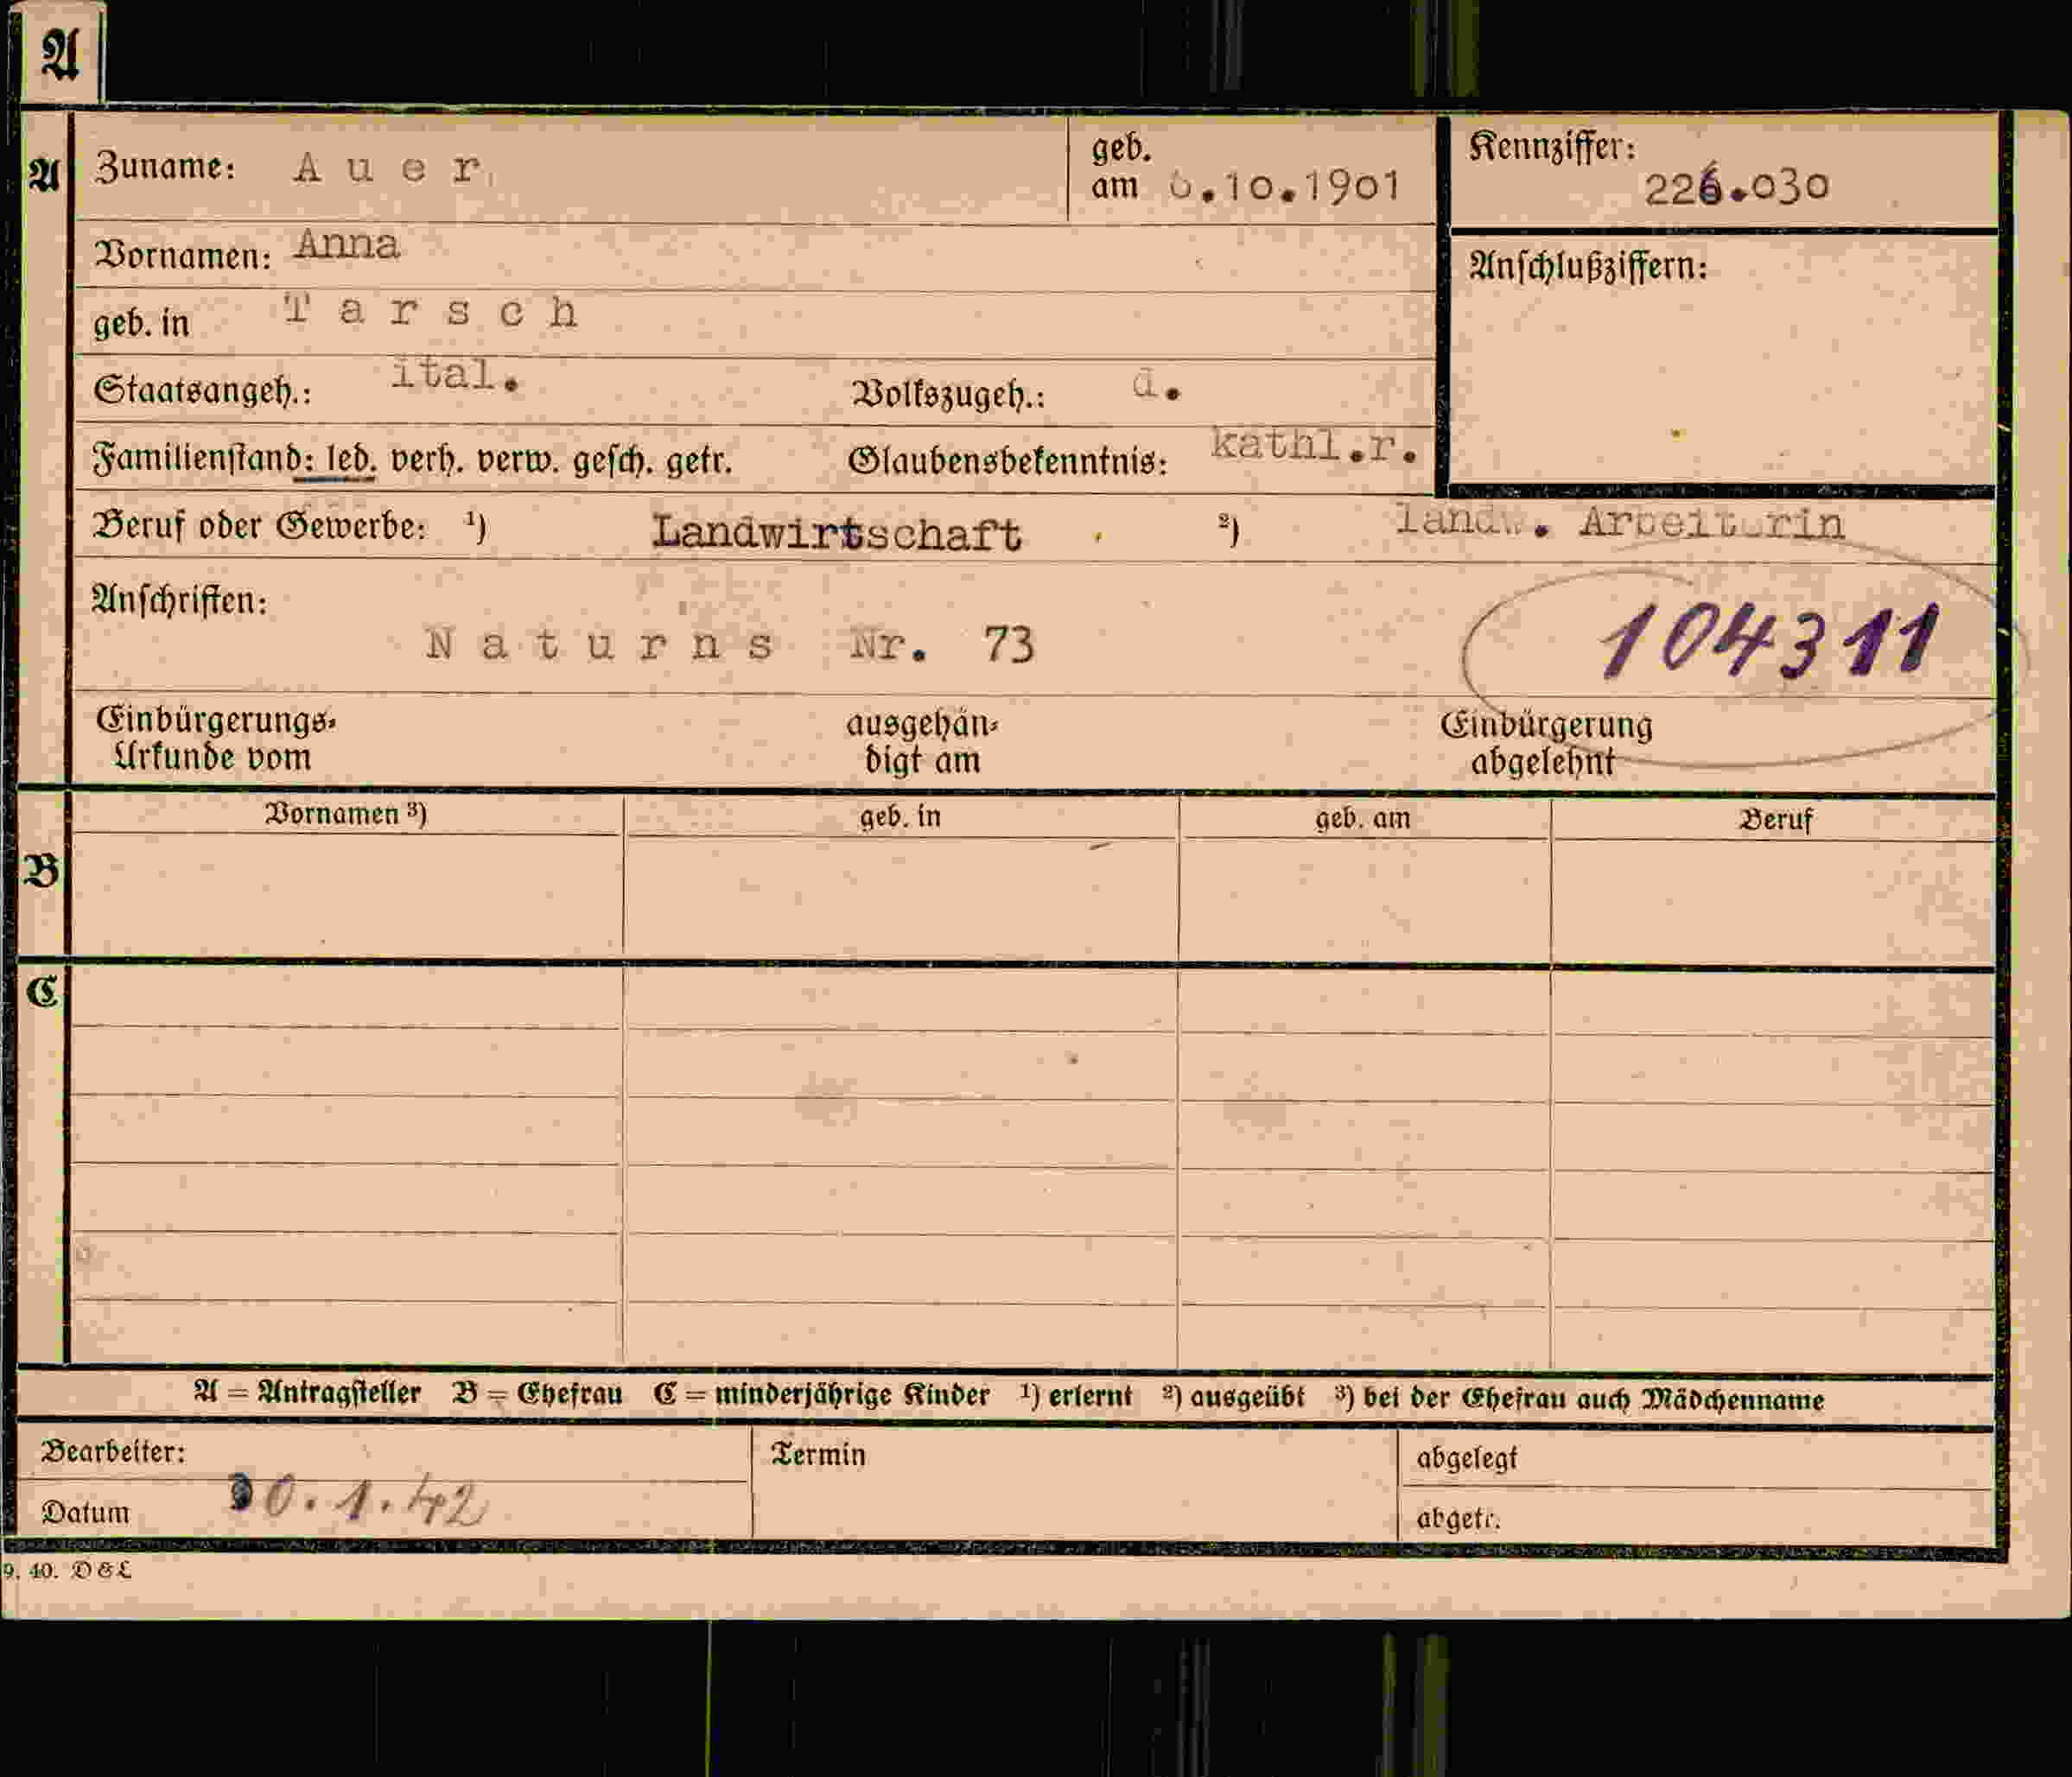 A
A
Zuname: Auer
geb.
am 6.10.1901
Kennziffer:
226.030
Vornamen: Anna
Anschlußziffern:
geb. in Tarsch
Staatsangeh.: ital. Volkszugeh.: d.
Familienstand: led. verh. verw. gesch. getr. Glaubensbekenntnis: kathl.r.
Beruf oder Gewerbe: ¹) Landwirtschaft ²) landw. Arbeiterin
Anschriften:
Naturns Nr. 73
104311
Einbürgerungs-
Urkunde vom
ausgehän-
digt am
Einbürgerung
abgelehnt
Vornamen ³) geb. in geb. am Beruf
B
C
A = Antragsteller B = Ehefrau C = minderjährige Kinder ¹) erlernt ²) ausgeübt ³) bei der Ehefrau auch Mädchenname
Bearbeiter:
Termin
abgelegt
Datum
0.1.42
abgetr.
9. 40. D & L